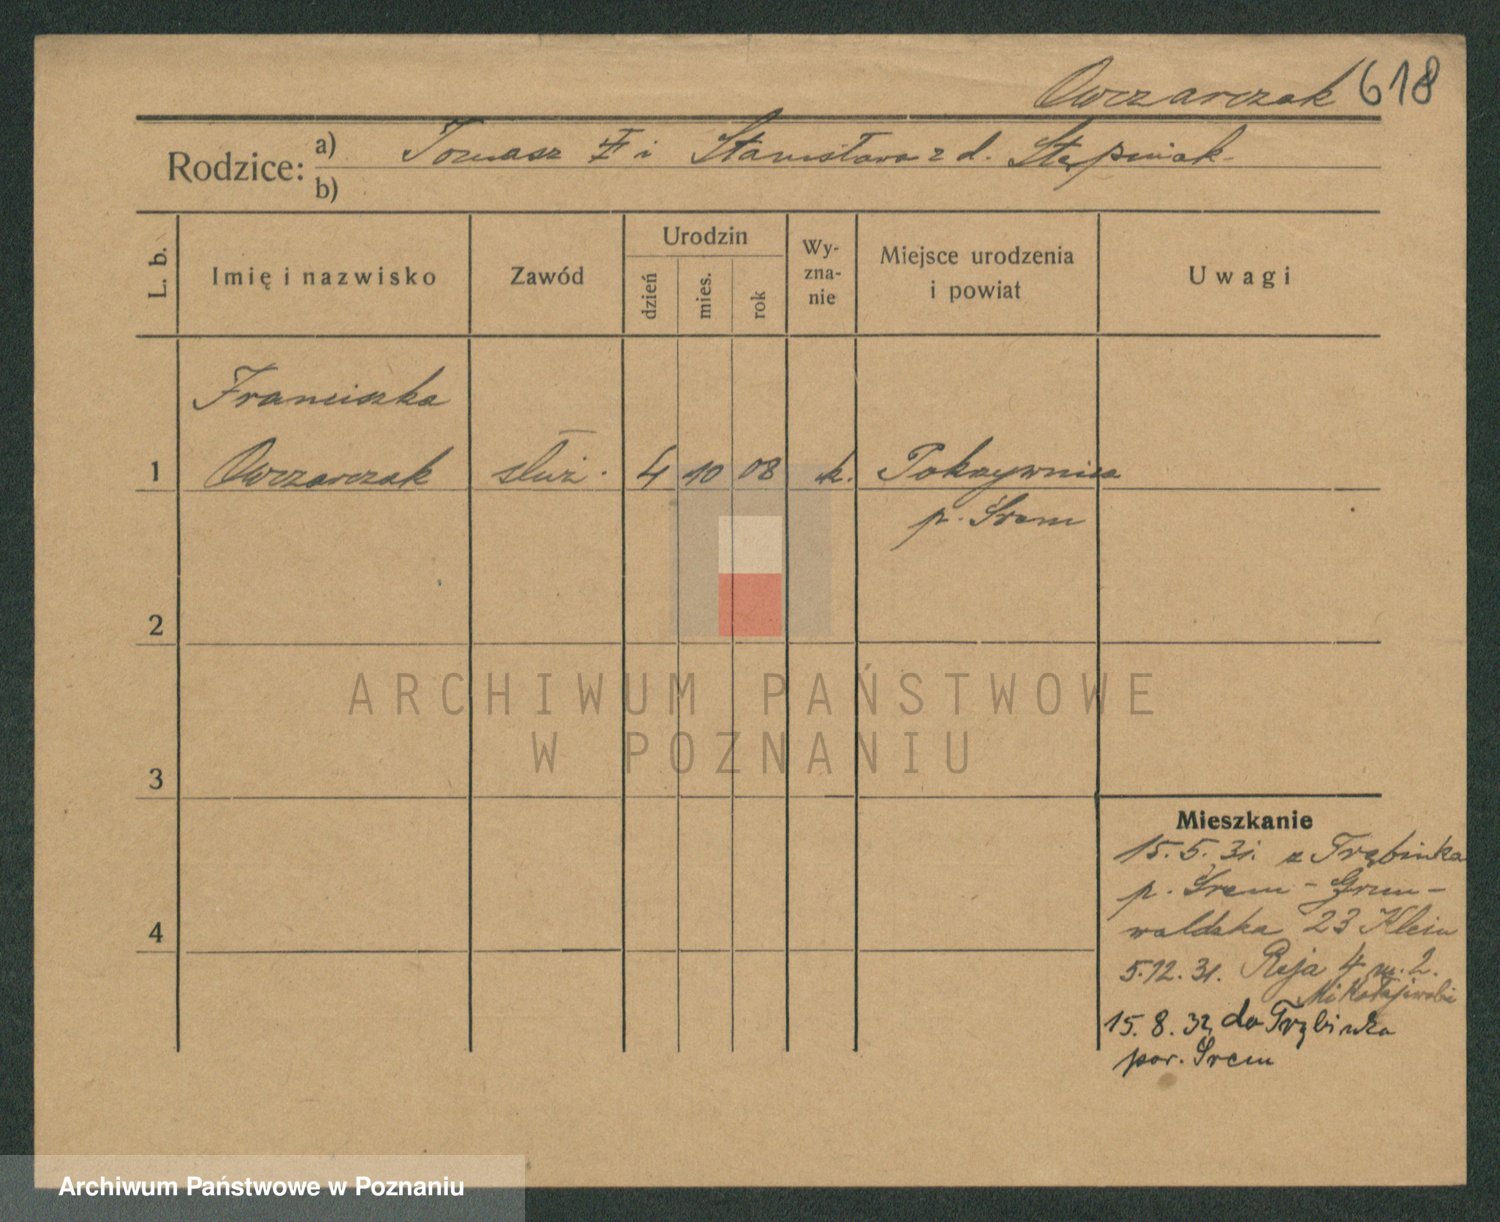 Owczarczak 618
Rodzice: a) Tomasz i Stanisława z d. Stępniak
b)
L. b.
Imię i nazwisko
Zawód
Urodzin
dzień
mies.
rok
Wy-
zna-
nie
Miejsce urodzenia
i powiat
Uwagi
Franciszka
1 Owczarczak służ. 4 10 08 k. Pokrzywnica
p. Śrem
2
ARCHIWUM PAŃSTWOWE
W POZNANIU
3
4
Mieszkanie
15.5.31. z Trąbinka
p. Śrem - Grun-
waldzka 23 Klein
5.12.31. Reja 4 m. 2.
Mikołajewski
15.8.32 do Trąbinka
pow. Śrem
Archiwum Państwowe w Poznaniu